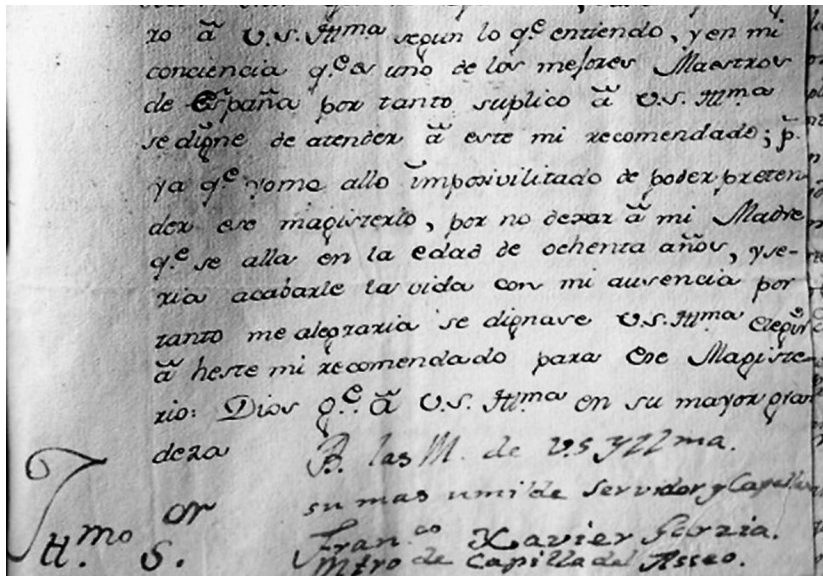 ro â V.S. Yll.ma segun lo q.e entiendo, y en mi
conciencia q.e es uno de los mejores Maestros
de España por tanto suplico â V.S. Yll.ma
se digne de atender â este mi recomendado; p.
ya q.e yo me allo imposivilitado de poder preten
der ese magisterio, por no dexar â mi Madre
q.e se alla en la edad de ochenta años, y se-
ria acabarle la vida con mi ausencia por
tanto me alegraria se dignase V.S. Yll.ma elegir
â heste mi recomendado para ese Magiste-
rio: Dios g.e â V.S. Yll.ma en su mayor gran
deza
B. las M. de V.S Yllma.
su mas umilde servidor y Capellan
Fran.co Xavier Garzia.
Mtro de Capilla del Asseo.
Yll.mo S.or